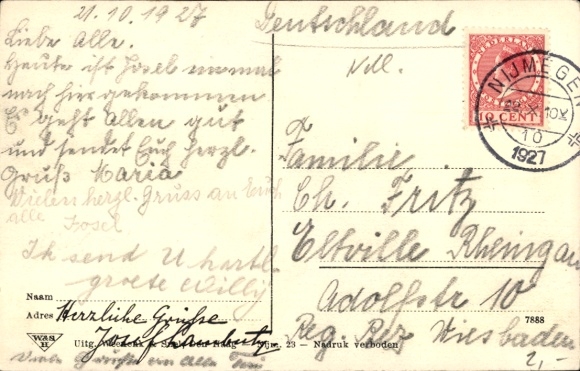 21.10.1927
Liebe Alle.
Heute ist Josef einmal
nach hier gekommen
Es geht Allen gut
und sendet Euch herzl.
Gruß Maria
Vielen herzl. Gruss an Euch
alle Josef
Ik send U hartl.
groete Willy
Naam
Adres Herzliche Grüsse
Josef
Uitg.
Nijm. 23 — Nadruk verboden
Viele Grüsse an Alle
Deutschland
NEDERLAND
10 CENT
NIJMEGEN
10
1927
Familie
Ch. Fritz
Eltville Rheingau
Adolfstr 10
7888
Reg. Bez Wiesbaden
2,-